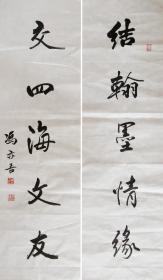 结翰墨情缘
交四海文友
冯亦吾